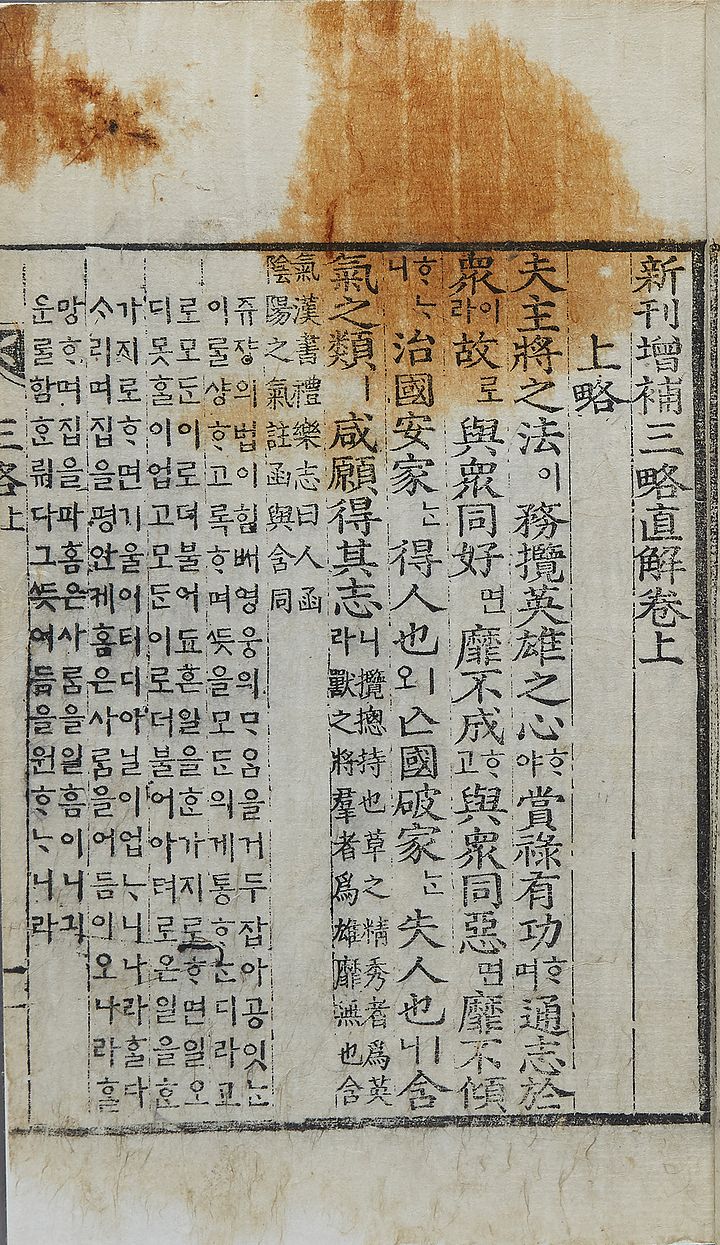 新刊增補三略直解卷上
上略
夫主將之法이務攬英雄之心ᄒᆞ야賞祿有功ᄒᆞ며通志於
衆이라故로與衆同好면靡不成ᄒᆞ고與衆同惡면靡不傾
ᄒᆞᄂᆞ니治國安家ᄂᆞᆫ得人也ㅣ오亾國破家ᄂᆞᆫ失人也ㅣ니含
氣之類ㅣ咸願得其志니라
攬摠持也草之精秀者爲英
獸之將羣者爲雄靡無也含
氣漢書禮樂志曰人函
陰陽之氣註函與含同
쥬쟝의법이힘ᄡᅥ영웅의ᄆᆞᄋᆞᆷ을거두잡아공잇ᄂᆞᆫ
이ᄅᆞᆯ샹ᄒᆞ고록ᄒᆞ며ᄠᅳᆺ을모ᄃᆞᆫ의게통ᄒᆞᄂᆞᆫ디라고
로모ᄃᆞᆫ이로뎌불어됴흔일을ᄒᆞᆫ가지로ᄒᆞ면일오
디못ᄒᆞᆯ이업고모ᄃᆞᆫ이로더불어아텨로온일을ᄒᆞᆫ
가지로ᄒᆞ면기울이티디아닐이업ᄂᆞ니나라ᄒᆞᆯ다
ᄉᆞ리며집을평안케홈은사ᄅᆞᆷ을어듬이오나라ᄒᆞᆯ
망ᄒᆞ며집을파홈은사ᄅᆞᆷ을일흠이니긔
운ᄅᆞᆯ함ᄒᆞᆫ뤼다그ᄠᅳᆺ여듬을원ᄒᆞᄂᆞ니라
三略上
一